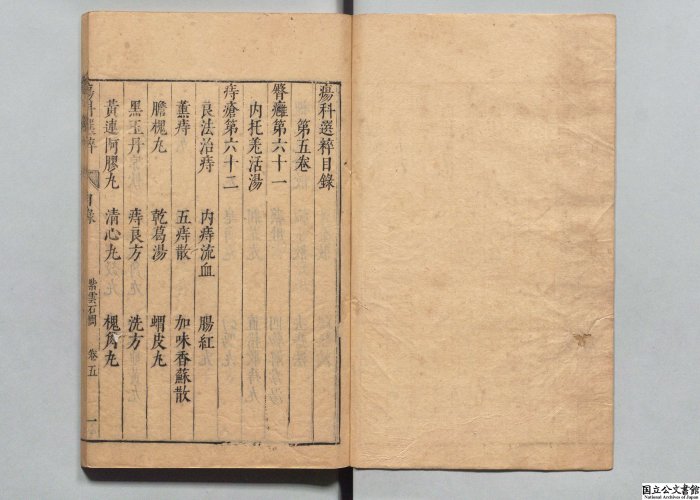 瘍科選粹目錄
第五卷
臀癰第六十一
內托羗活湯
痔瘡第六十二
良法治痔 內痔流血 腸紅
薰痔 五痔散 加味香蘇散
膽槐丸 乾葛湯 蝟皮丸
黑玉丹 痔良方 洗方
黃連阿膠丸 清心丸 槐角丸
瘍科選粹 目錄 卷五 一
国立公文書館
National Archives of Japan